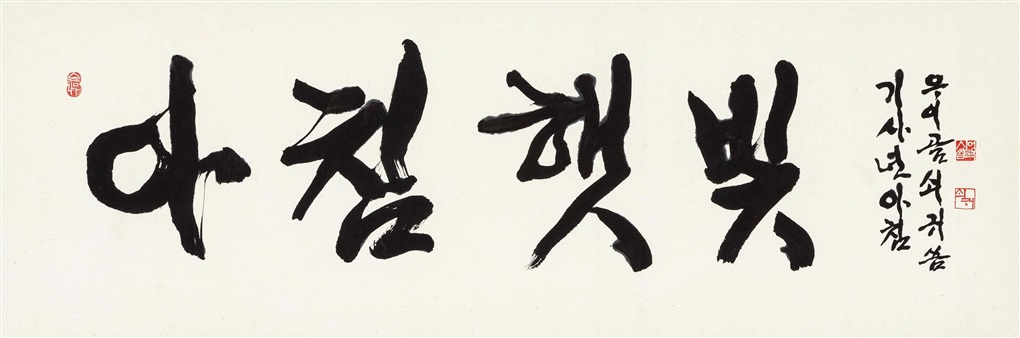 아침햇빛
기사년 아침
우이골 쇠귀 씀